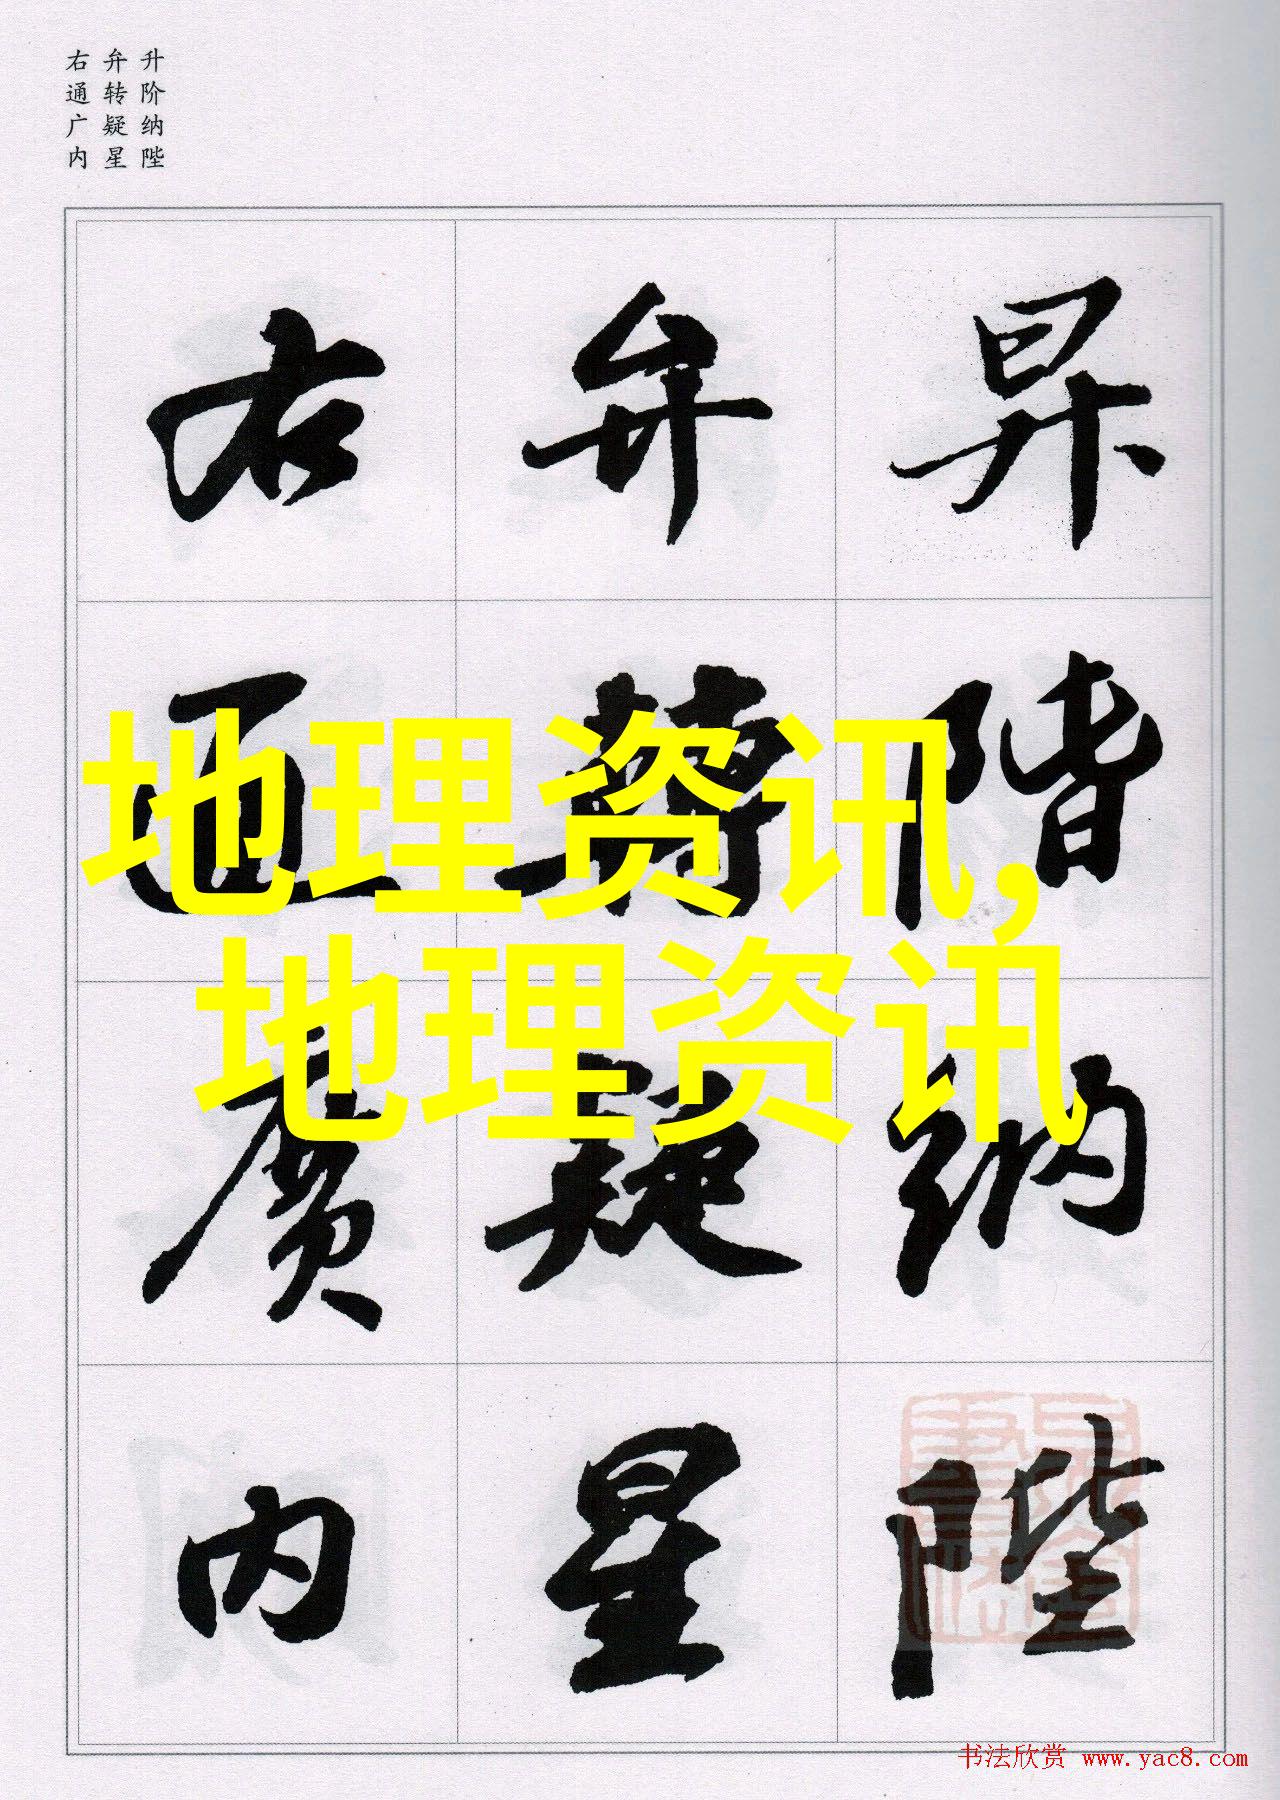 升阶纳陛
弁转疑星
右通广内
昇階納陛
弁轉疑星
右通廣內
地理资讯,
地理资讯
书法欣赏 www.yac8.com